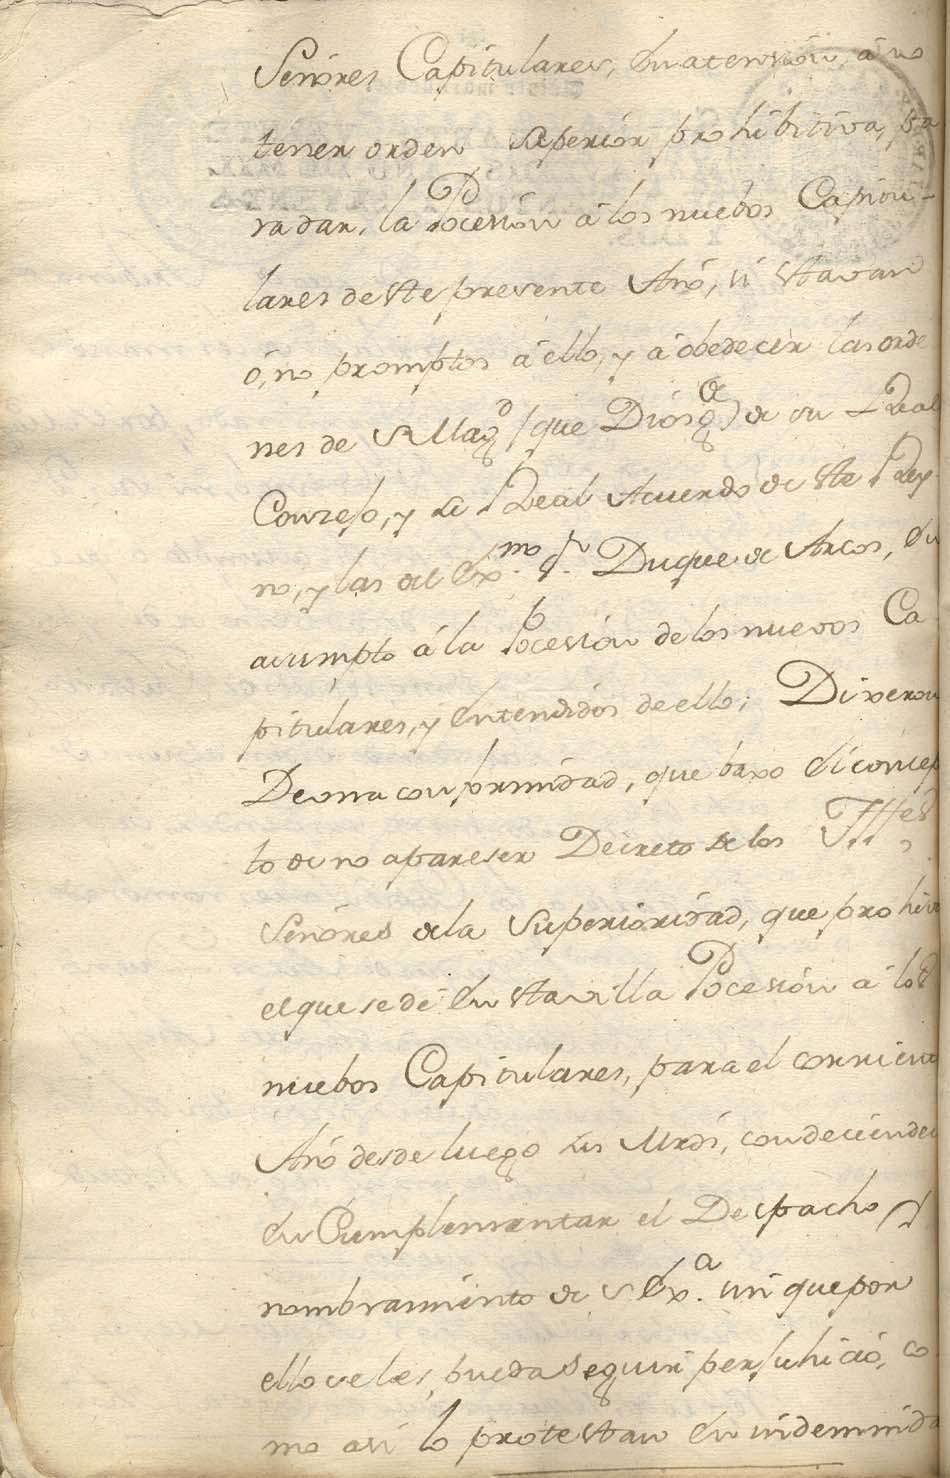 Señores Capitulares, En atension, á no
tener orden superior prohibitiva, pa
ra dar, la Pocesion á los nuebos Capitu-
lares de Ste presente Año, si Stavan
ó, no promptos á ello, y á obedecer las orde
nes de S. Magd (que Dios ge) de su Real
Consejo, y de Real Acuerdo de Ste Rey
no, y las del Exmo. Sr. Duque de Arcos, En
asumpto á la Pocesion de los nuevos Ca
pitulares, y Entendidos de ello; Dixeron
De una conformidad, que baxo El concep
to de no apareser Decreto de los
Señores de la Superioridad, que prohive
el que se dé En Sta villa Pocesion á los
nuebos Capitulares, para el corriente
Año desde luego sus Mrds, condecienden
En Cumplementar el Despacho y
nombramiento de S Exa. sin que por
ello se les pueda seguir perjuhicio, co
mo asi lo protestan En indemnida